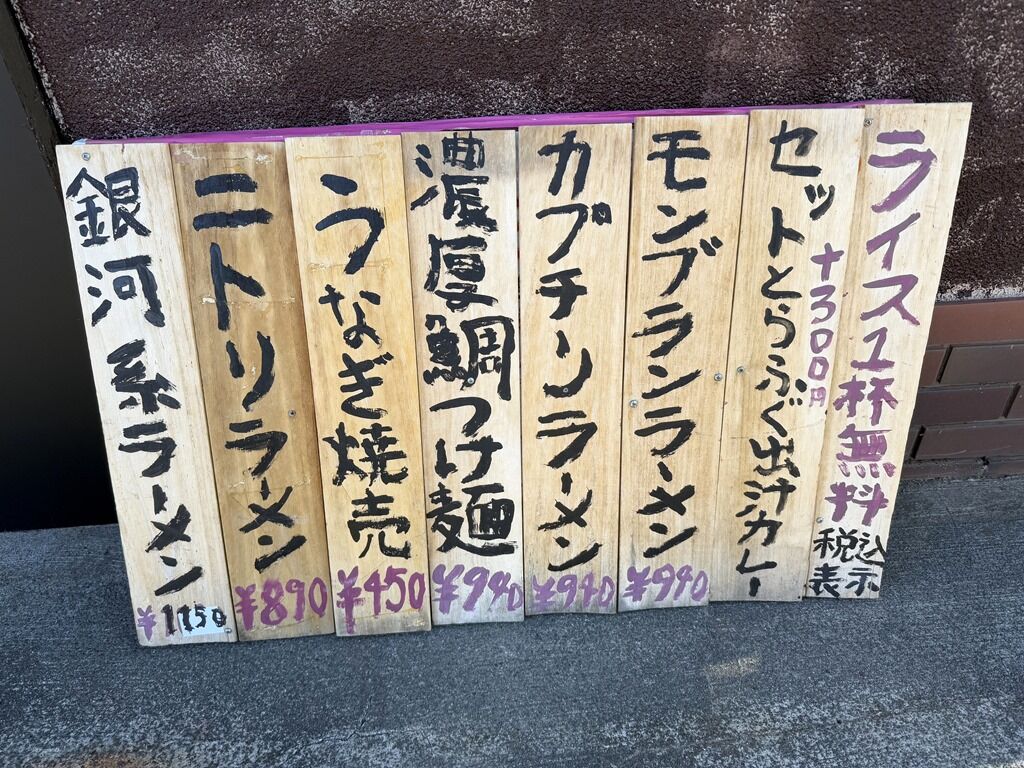 ライス1杯無料
税込
表示
セットとらふぐ出汁カレー
+300円
モンブランラーメン
¥940
カプチーノラーメン
¥940
濃厚鯛つけ麺
¥940
うなぎ焼売
¥450
ニトリラーメン
¥890
銀河系ラーメン
¥1150